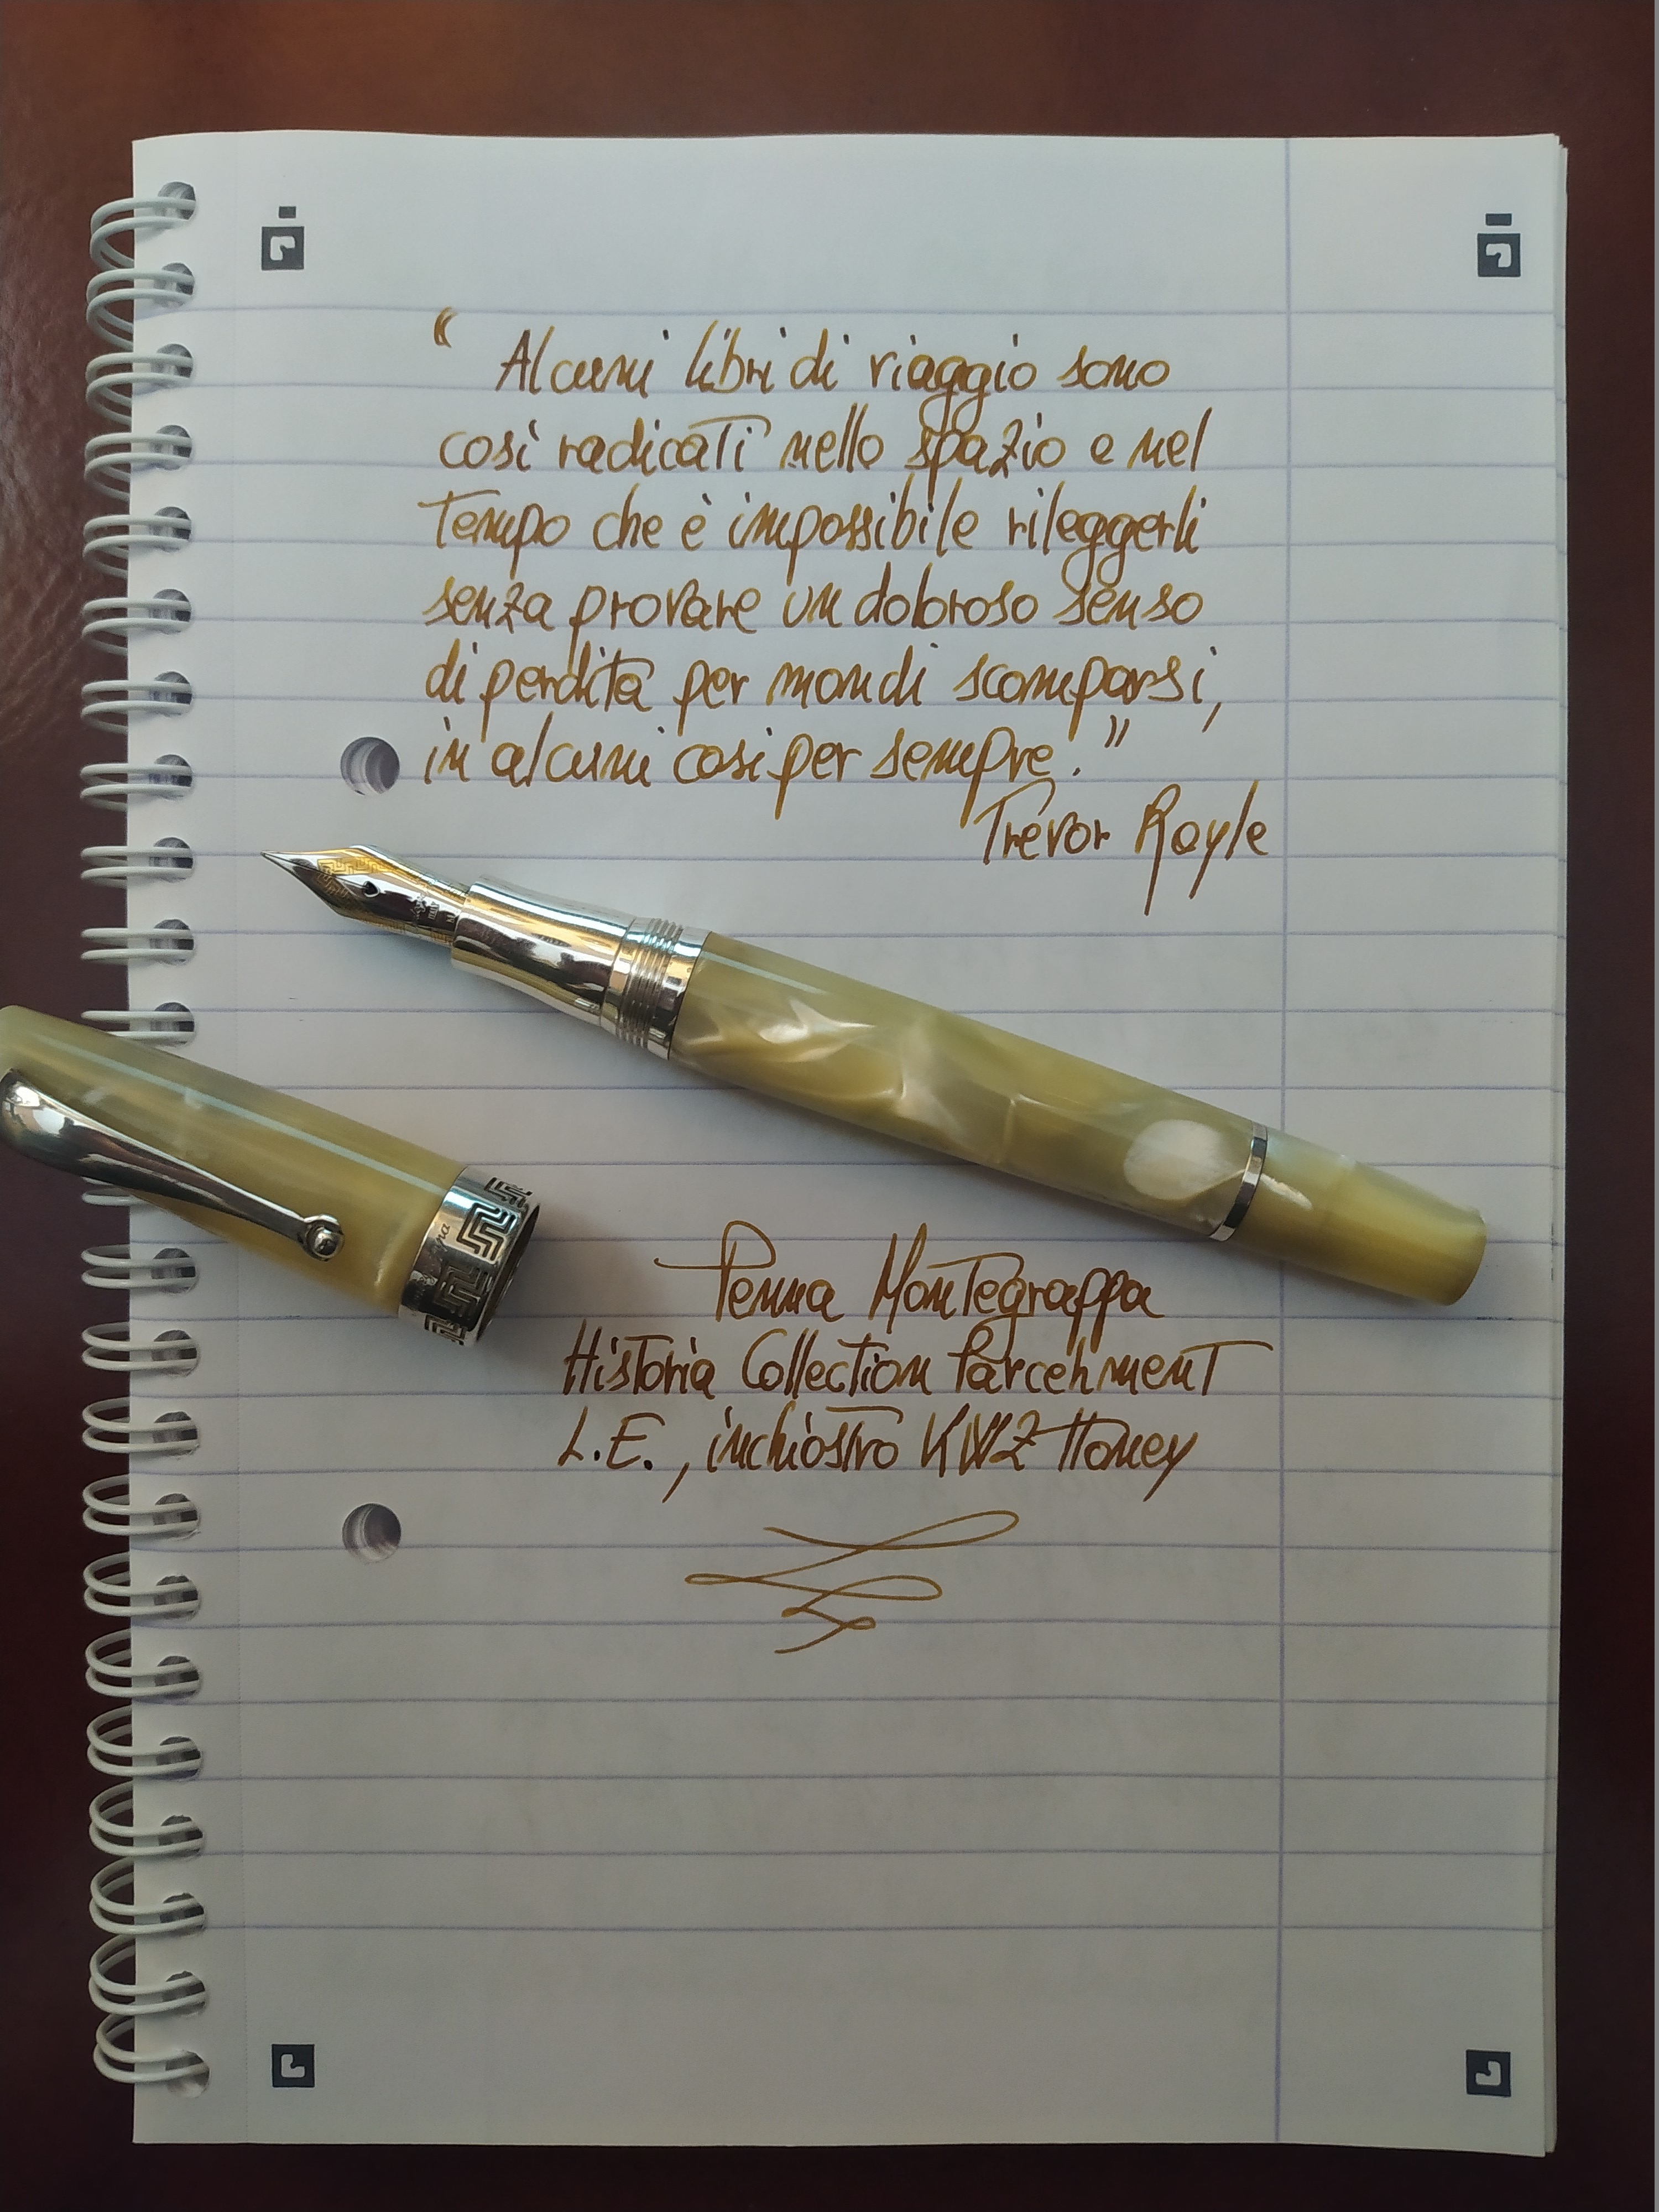 “ Alcuni libri di viaggio sono
così radicati nello spazio e nel
tempo che è impossibile rileggerli
senza provare un doloroso senso
di perdita per mondi scomparsi,
in alcuni casi per sempre.”
Trevor Royle
Penna Montegrappa
Historia Collection Parcehment
L.E., inchiostro KWZ Honey